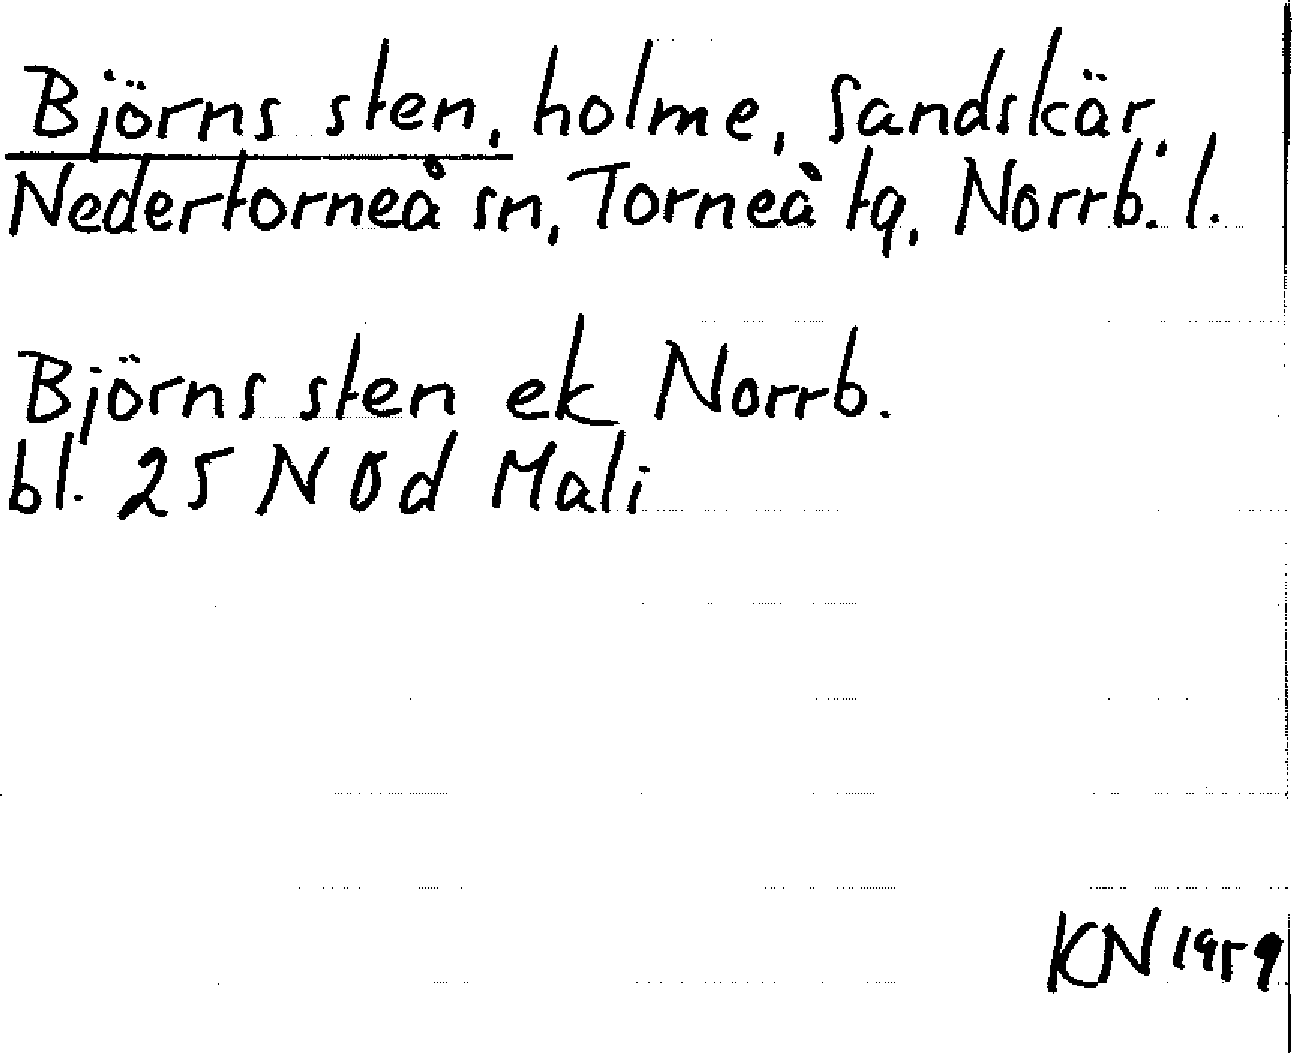 Björns sten, holme, Sandskär.
Nedertorneå sn, Torneå tg, Norrb. l.
Björns sten ek Norrb.
bl. 25 N Öd Mali
KN 1959